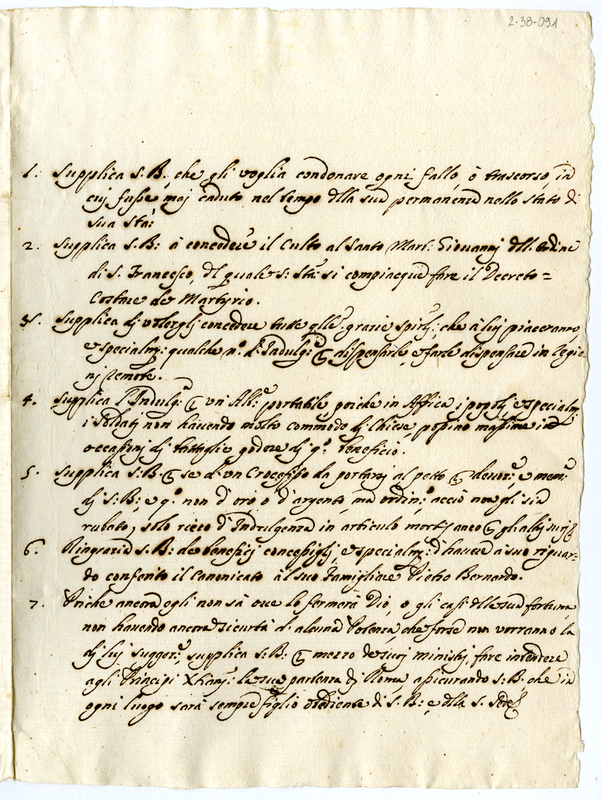 2-38-091
1. Supplica S. B. che gli voglia condonare ogni fallo, ò trascorso in
cuj fusse maj caduto nel tempo dlla sua permanenza nello stato di
sua Stà:
2. Supplica S. B: à concedere il Culto al Santo Mart: Giovannj dll. ordine
di S. Francesco, dl quale S: Stà: si compiacque fare il Decreto =
Costare de Martyrio.
3. Supplica dj volergli concedere tutte qlle grazie spirlj, che à luj piaceranno
e specialmte: qualche n.o d'Indulge dispensarle, e farle dispensare in regio-
nj remote.
4. Supplica l'Indulg: un Alte portabile, poiche in Affrica j popolj, e specialmte
i soldatj non havendo molto commodo dj chiese possino massime in
occasionj dj battaglie godere dj qo beneficio.
5. Supplica S. B. se d'un Crocefisso da portarsj al petto devoze, e mema
dj S: B: e qo non d'oro, o d'argento, ma ordino acciò non gli sia
rubato, solo ricco d'Indulgenza in articulo mortis
6. Ringrazia S. B: de beneficij concessiglj, e specialmte: d'havere à suo riguar-
do confento il Canonicato al suo Famigliare Pietro Bernardo.
7. Perche ancora egli non sà ove lo fermerà Dio, o gli casi dlla sua fortuna
non havendo ancora sicurtà d'alcuna Potenza che forse non vorranno la
dj luj suggore, supplica S: B: mezzo de suoj ministrj, fare intendere
agli Principi Xtianj: la sua partenza dj Roma assicurando S. B. che in
ogni luogo sarà sempre figlio obediente di S. B: e dlla S. Sede